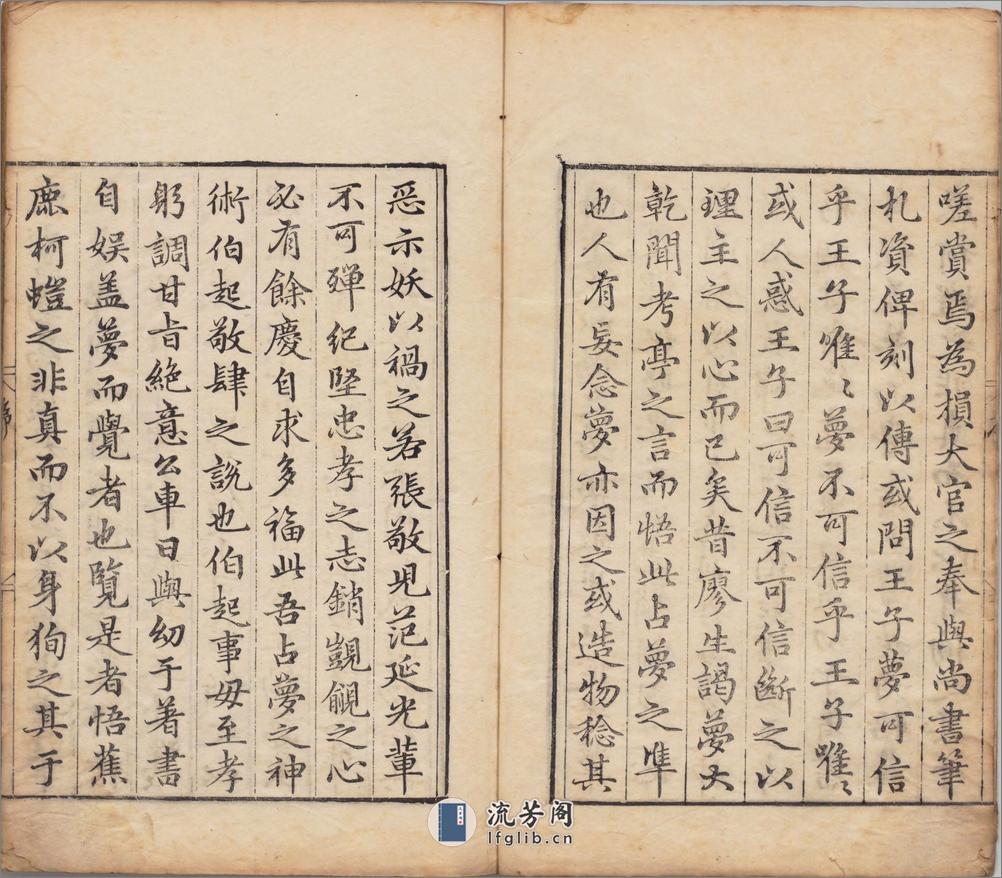 嗟賞焉為損大官之奉與尚書筆
札資俾刻以傳或問王子夢可信
乎王子唯〻夢不可信乎王子唯〻
或人惑王子曰可信不可信斷之以
理主之以心而已矣昔廖生謁夢大
乾聞考亭之言而悟此占夢之準
也人有妄念夢亦因之或造物稔其
惡示妖以禍之若張敬児范延光輩
不可殫紀堅忠孝之志銷覬覦之心
必有餘慶自求多福此吾占夢之神
術伯起敬肆之說也伯起事毋至孝
躬調甘旨絶意公車日與幼于著書
自娱盖夢而覺者也覽是者悟蕉
鹿柯螘之非真而不以身狥之其于
序
流芳阁
lfglib.cn